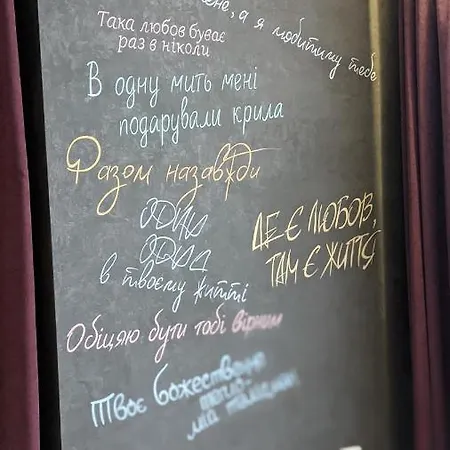 мене, а я любитиму тебе
Така любов буває
раз в ніколи
В одну мить мені
подарували крила
Разом назавжди
ОДНА
ОДНА
в твоєму житті
ДЕ Є ЛЮБОВ,
ТАМ Є ЖИТТЯ
Обіцяю бути тобі вірним
Твоє божественно
тепло-